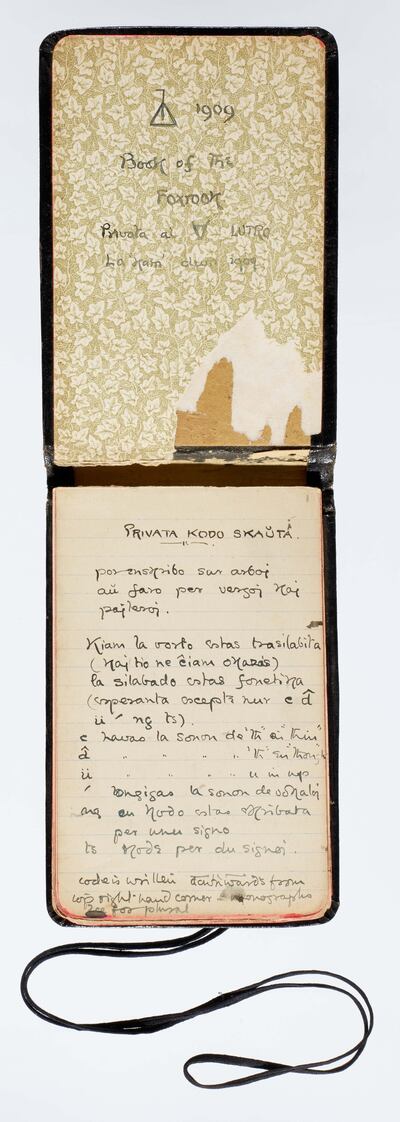 1909
Book of the
Foxrook
Privata al LUTRO
La kaj 1909
PRIVATA KODO SKAŬTA.
por enskribo sur arboj
aŭ faro per vergoj kaj
pajleroj.
Kiam la vorto estas trasilabita
(kaj tio ne ĉiam okazas)
la silabado estas fonetika
(esperanta escepte nur c d̂
ü ´ ng ts).
c havas la sonon de "th" en "thin"
d̂ " " " " "th" en "though
ü " " " " u in up
´ longigas la sonon de vokaloj
ang en kodo estas skribata
per unu signo
ts kode per du signoj.
code is written downwards from
top right-hand corner monographs
for plural